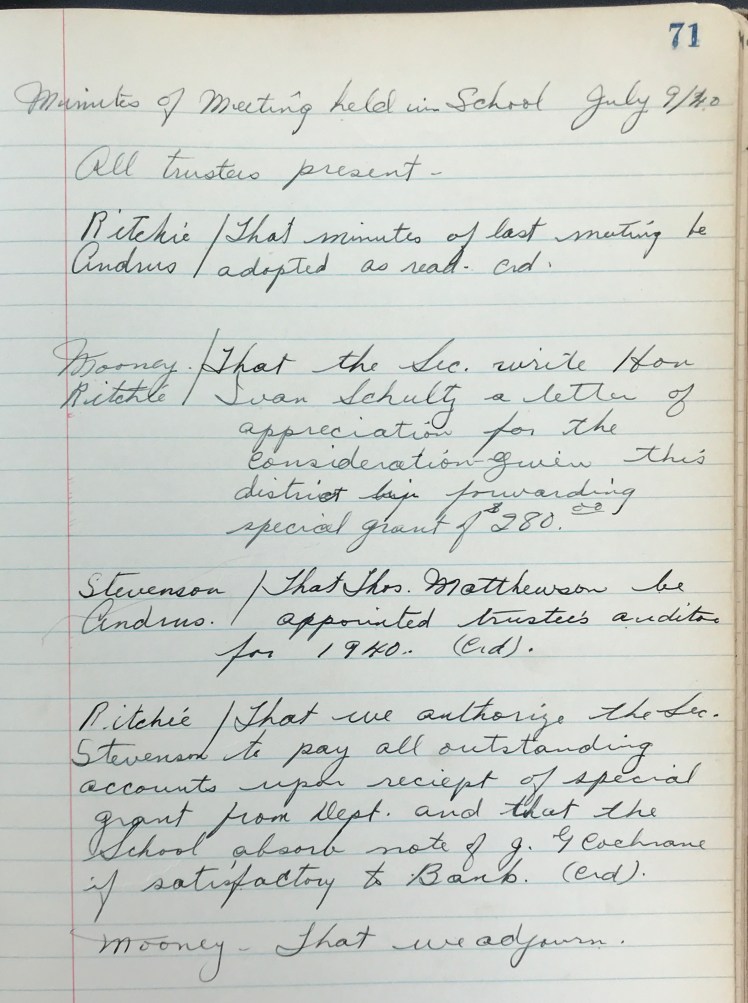 71
Minutes of Meeting held in School July 9/40
All trustees present -
Ritchie / That minutes of last meeting be
Andrus / adopted as read. Crd.
Mooney. / That the Sec. write Hon
Ritchie / Ivan Schultz a letter of
appreciation for the
consideration given this
district by forwarding
special grant of $280.00
Stevenson / That Thos. Matthewson be
Andrus. / appointed trustee's auditor
for 1940. (Crd).
Ritchie / That we authorize the Sec.
Stevenson to pay all outstanding
accounts upon reciept of special
grant from Dept. and that the
School absorb note of J. G Cochrane
if satisfactory to Bank. (Crd).
Mooney - That we adjourn.